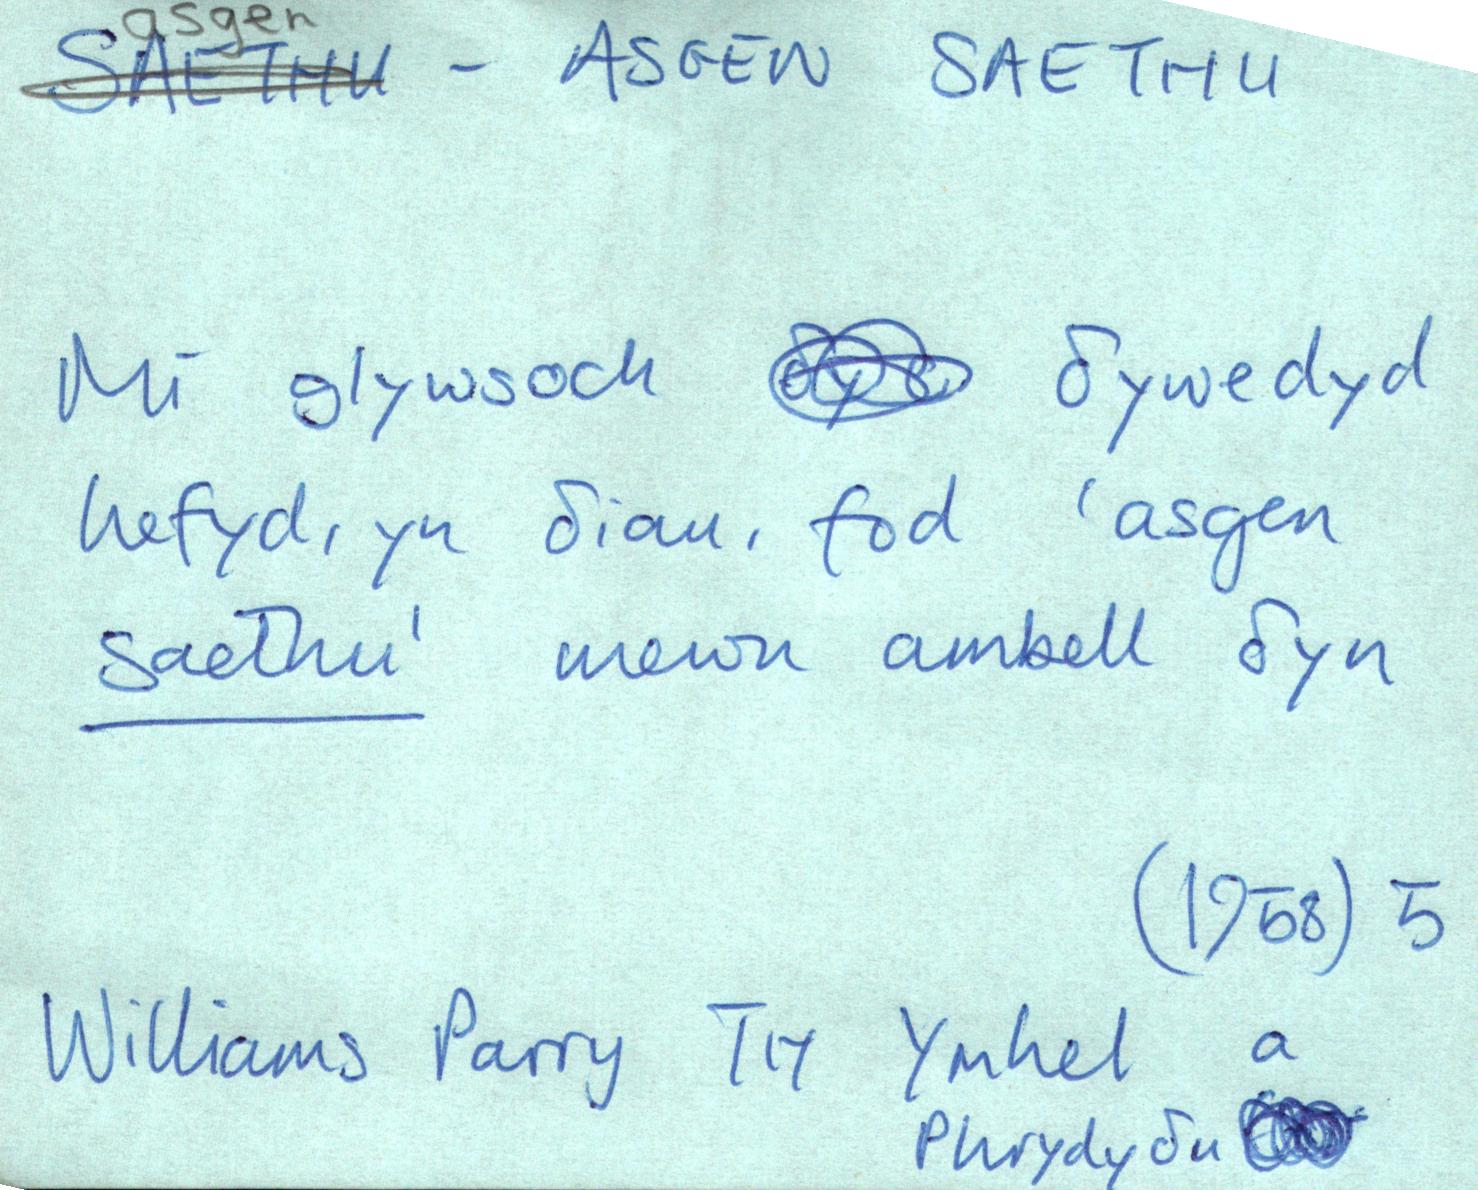 asgen
SAETHU - ASGEN SAETHU
Mi glywsoch δywedyd
hefyd, yn δiau, fod 'asgen
saethu' mewn ambell δyn
(1958) 5
Williams Parry TH Ymhel a
Phrydyδu